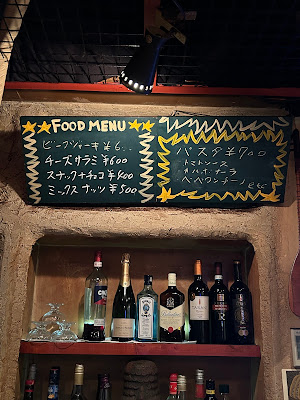 FOOD MENU
ビーフジャーキ ¥6
チーズサラミ ¥600
スナック+チョコ ¥400
ミックスナッツ ¥500
パスタ ¥700
トマトソース
カルボナーラ
ペペロンチーノ
etc